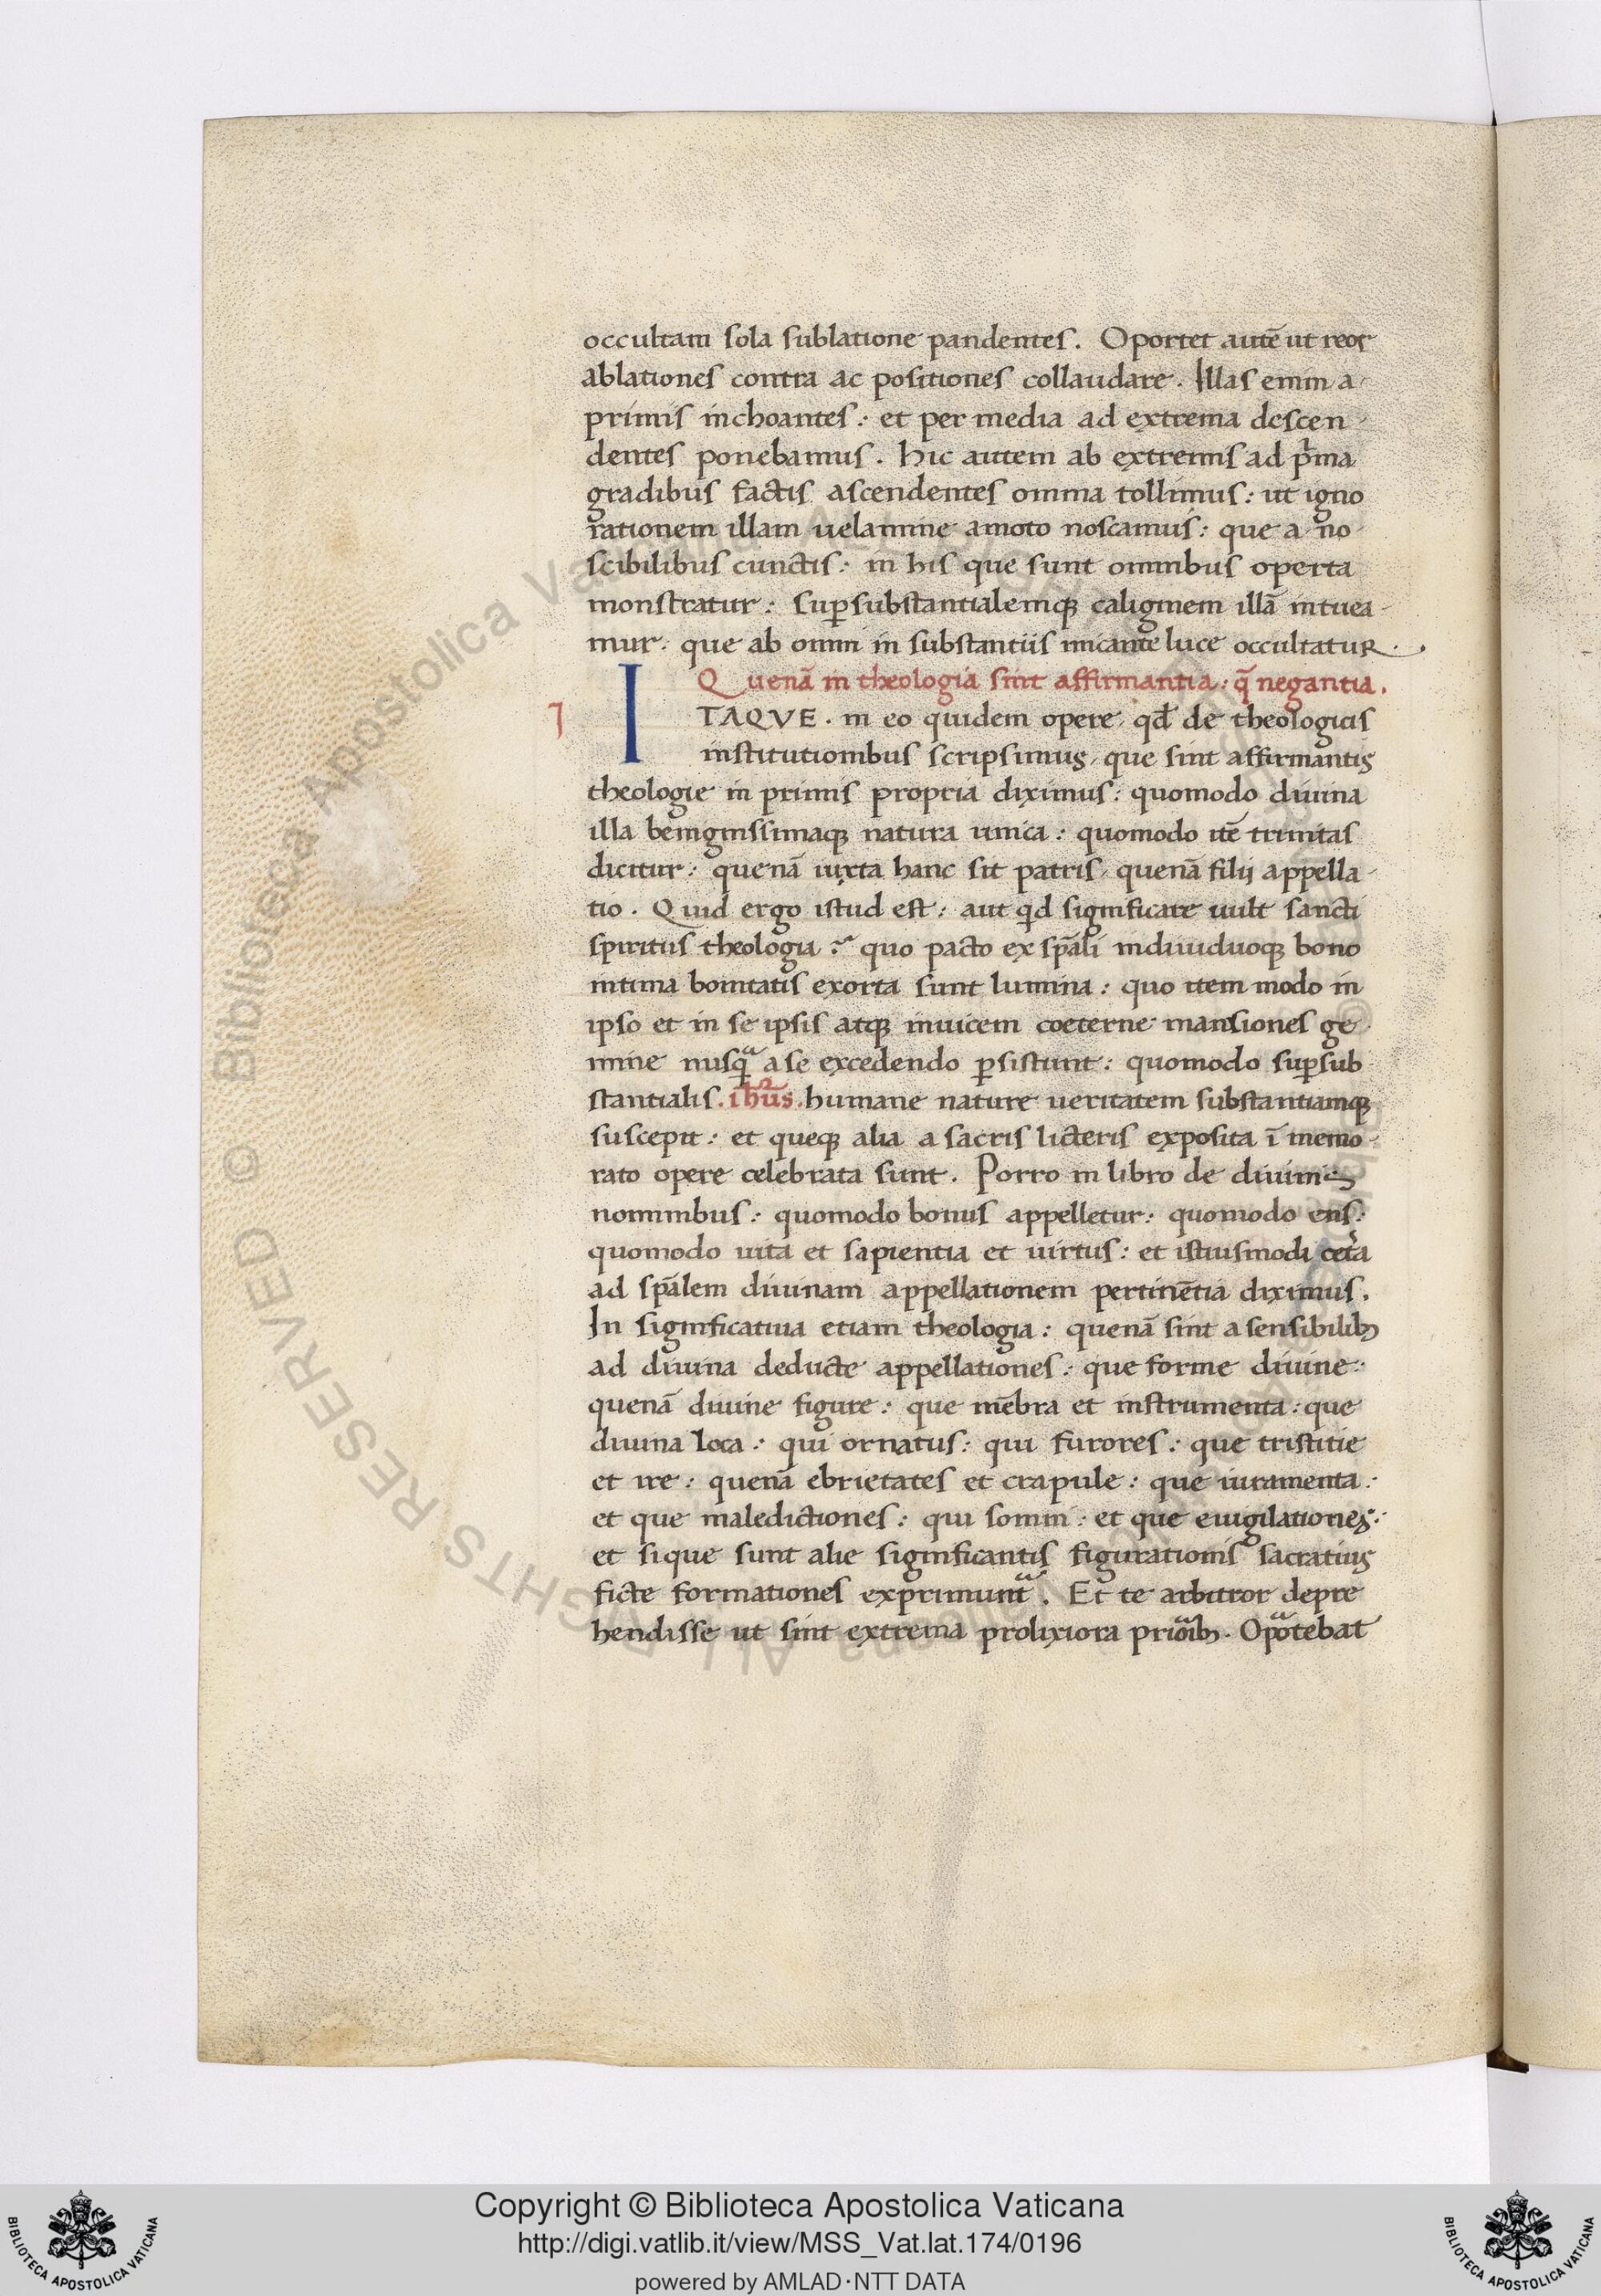 occultam sola sublatione pandentes. Oportet autē ut reor
ablationes contra ac positiones collaudare. Illas enim a
primis inchoantes: et per media ad extrema descen
dentes ponebamus. hic autem ab extremis ad pͥma
gradibus factis ascendentes omnia tollimus: ut igno
rationem illam uelamine amoto noscamus: que a no
scibilibus cunctis: in his que sunt omnibus operta
monstratur: suꝑsubstantialemqꝫ caliginem illā intuea
mur: que ab omni in substantiis micante luce occultatur.
Quenā in theologia sint affirmantia: q̄ negantia.
ITAQVE. in eo quidem opere, qđ de theologicis
institutionibus scripsimus, que sint affirmantis
theologie in primis propria diximus: quomodo diuina
illa benignissimaqꝫ natura unica: quomodo itē trinitas
dicitur: quenā iuxta hanc sit patris, quenā filij appella
tio. Quid ergo istud est: aut qd significare uult sancti
spiritus theologia? quo pacto ex sp̄ali indiuiduoqꝫ bono
intima bonitatis exorta sunt lumina: quo item modo in
ipso et in se ipsis atqꝫ inuicem coeterne mansiones ge
mine nusqᵃ a se excedendo ꝑsistunt: quomodo suꝑsub
stantialis. ihūs. humane nature ueritatem substantiamqꝫ
suscepit: et queqꝫ alia a sacris licteris exposita ī memo
rato opere celebrata sunt. Porro in libro de diuinis
nominibus: quomodo bonus appelletur: quomodo ens:
quomodo uita et sapientia et uirtus: et istiusmodi cet̉a
ad sp̄alem diuinam appellationem pertinētia diximus.
In significatiua etiam theologia: quenā sint a sensibilibꝫ
ad diuina deducte appellationes: que forme diuine:
quenā diuine figure: que mēbra et instrumenta: que
diuina loca: qui ornatus: qui furores: que tristitie
et ire: quenā ebrietates et crapule: que iuramenta:
et que maledictiones: qui somni: et que euigilationes:
et si que sunt alie significantis figurationis sacratius
ficte formationes exprimunt᷑. Et te arbitror depre
hendisse ut sint extrema prolixiora prioribꝫ. Oportebat
Copyright © Biblioteca Apostolica Vaticana
http://digi.vatlib.it/view/MSS_Vat.lat.174/0196
powered by AMLAD·NTT DATA
BIBLIOTECA APOSTOLICA VATICANA
BIBLIOTECA APOSTOLICA VATICANA